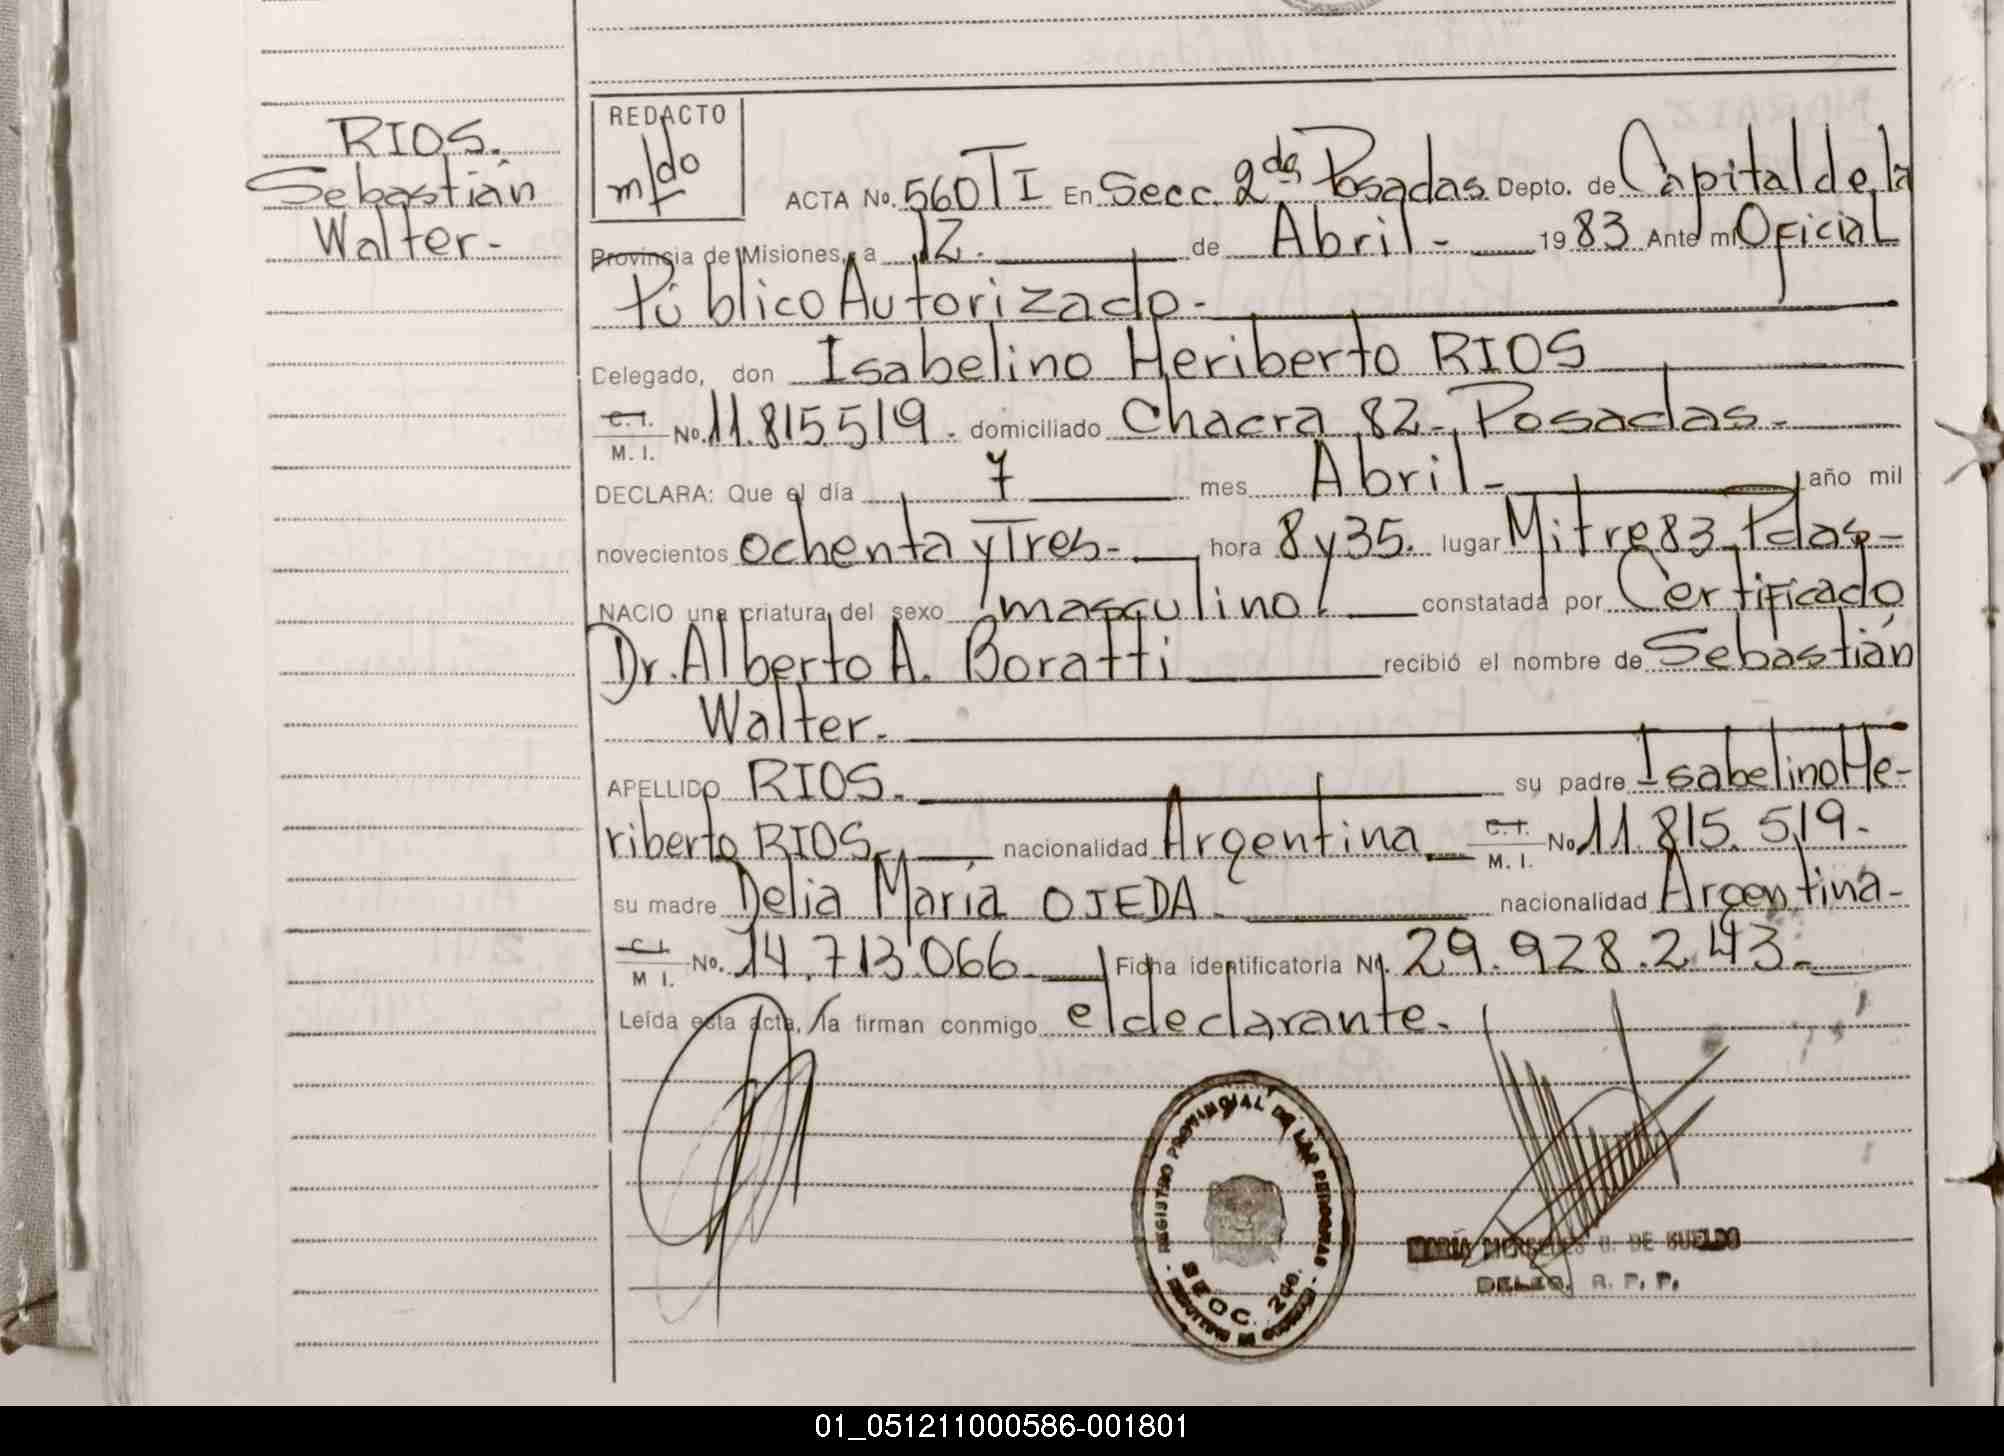 RIOS.
Sebastián
Walter-
REDACTO
m/do
ACTA No. 560 T I En Secc. 2da Posadas Depto. de Capital de la
Provincia de Misiones, a 12. de Abril - 1983 Ante mi Oficial
Público Autorizado-
Delegado, don Isabelino Heriberto RIOS
C.I.
M. I. No. 11.815.519. domiciliado Chacra 82- Posadas-
DECLARA: Que el día 7 mes Abril- año mil
novecientos ochenta y Tres- hora 8 y 35. lugar Mitre 83 Pdas-
NACIO una criatura del sexo masculino constatada por Certificado
Dr. Alberto A. Boratti recibió el nombre de Sebastián
Walter.
APELLIDO RIOS. su padre Isabelino He-
riberto RIOS nacionalidad Argentina C.I.
M. I. No 11.815.519-
su madre Delia María OJEDA nacionalidad Argentina-
C.I.
M I. No. 14.713.066 Ficha identificatoria No. 29.928.243-
Leída esta acta, la firman conmigo el declarante.
REGISTRO PROVINCIAL DE LAS PERSONAS
SECC. 2da.
MARÍA MERCEDES DE SUELDO
DELEG. R. P. P.
01_051211000586-001801